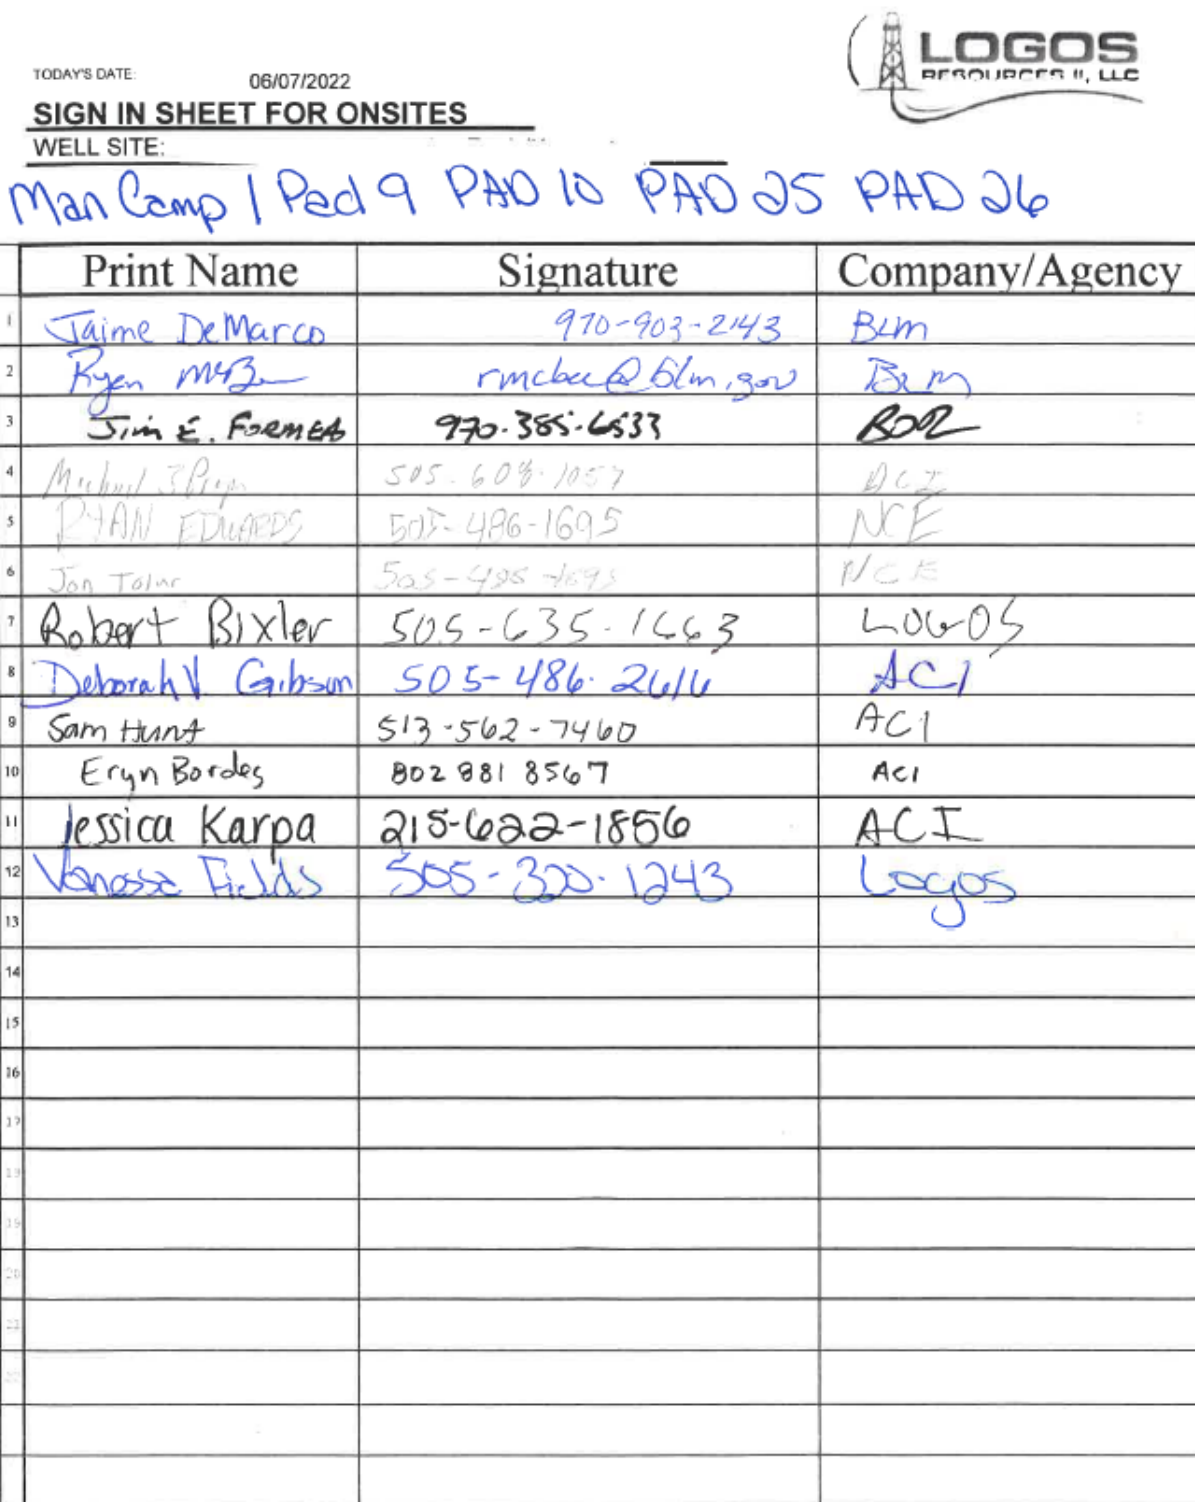 LOGOS
RESOURCES II, LLC
TODAY'S DATE: 06/07/2022
SIGN IN SHEET FOR ONSITES
WELL SITE:
Man Camp 1 Pad 9 PAD 10 PAD 25 PAD 26
Print Name Signature Company/Agency
1 Jaime DeMarco 970-903-2143 BLM
2 Ryan McBee rmcbee@blm.gov BLM
3 Jim E. FORMEA 970-385-6533 BOR
4 505-608-1057 ACI
5 RYAN EDWARDS 505-486-1695 NCE
6 Jon NCE
7 Robert Bixler 505-635-1663 LOGOS
8 Deborah V Gibson 505-486-2616 ACI
9 Sam Hunt 513-562-7460 ACI
10 Eryn Bordes 802 881 8567 ACI
11 Jessica Karpa 215-622-1856 ACI
12 Vanessa Fields 505-320-1243 Logos
13
14
15
16
17
18
19
20
21
22